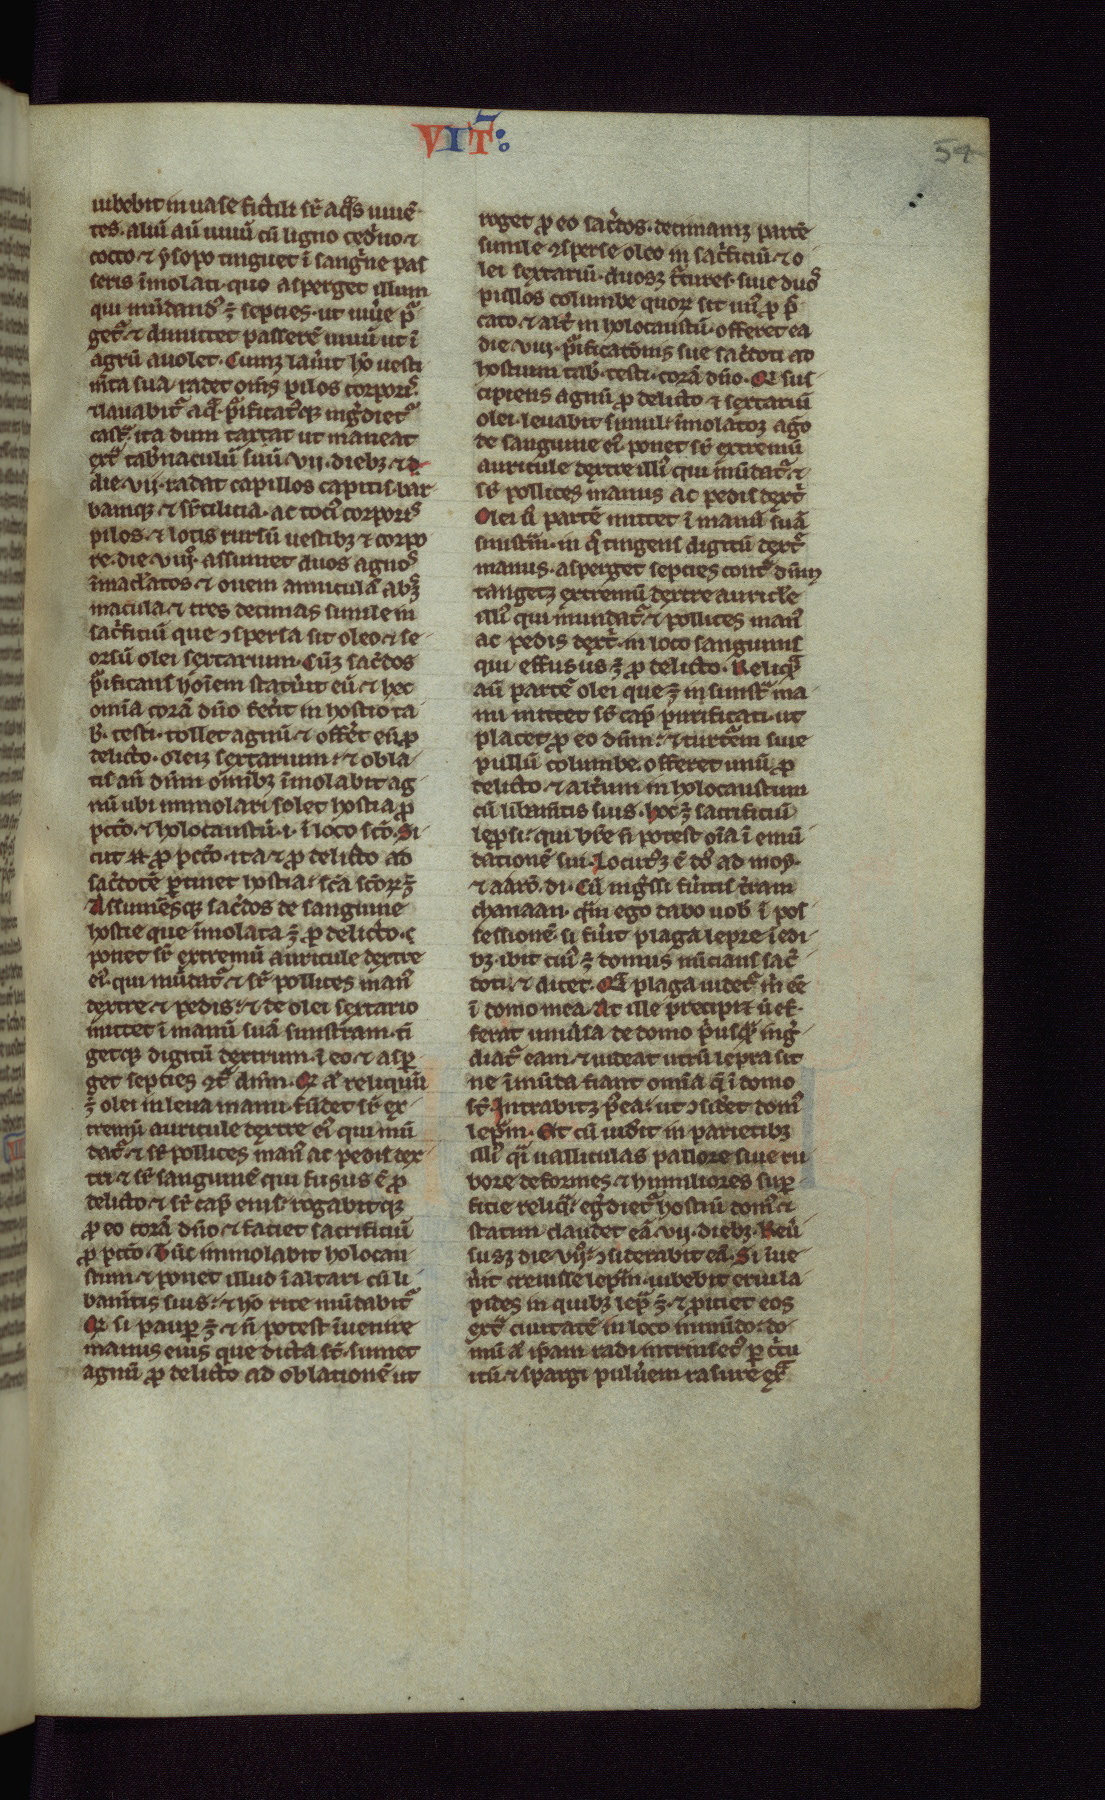 VIT:
54
iubebit in uase fictili sr̄ aq̄s uiuē
tes. aliū aū uiuū cū ligno ced̾no ⁊
cocco ⁊ ẏsopo tinguet ī sang̾ne pas
seris īmolati. quo asperget illum
qui mūdandꝰ ē septies. ut iur̄e pꝰ
getꝰ ⁊ dimittet passerē uiuū ut ī
agrū auolet. Cumqꝫ lau̾it hō uesti
mīta sua. radet om̄s pilos corporiꝰ.
⁊ lauabitꝰ aq̄. pꝰificatꝰqꝫ ing̾dietꝰ
cast̾. ita dum taxat ut maneat
ext̾ tab̾naculū suū vij. diebꝫ. ⁊ d̾
die vij. radat capillos capitis. bar
bamqꝫ ⁊ sup̾cilia. ac tociꝰ corporiꝰ
pilos. ⁊ lotis rursū uestibꝫ ⁊ corpo
re. die viijº. assumet duos agnoꝰ
īmac̄latos. ⁊ ouem anniculā abqꝫ
macula. ⁊ tres decimas simile in
sac̾ficiū que ↄspersa sit oleo. ⁊ se
orsū olei sextarium. Cūqꝫ sac̾dos
pꝰificans hoīem statu̾it eū. ⁊ hec
omīa corā dn̄o fec̾it in hostio ta
b̾. testi. tollet agnū. ⁊ offeret eū ꝓ
delicto. oleiqꝫ sextarium. ⁊ obla
tis an̄ dn̄m om̄ibꝫ īmolabit ag
nū ubi immolari solet hostia ꝓ
pcc̄o. ⁊ holocaustū. i. ī loco sc̄o. Si
cut n̄ ꝓ pcc̄o. ita ⁊ ꝓ delicto ad
sac̾dotē ꝑtinet hostia. sc̄a sc̄orꝫ ē
Assumēsqꝫ sac̾dos de sanguine
hostie que īmolata ē ꝓ delicto.
ponet sr̄ extremū auricule dextre
eiꝰ. qui mūdatꝰ ⁊ sr̄ pollices manꝰ
dextre ⁊ pedis. ⁊ de olei sextario
mittet ī manū suā sinistram. tī
getqꝫ digitū dextrum. ī eo. ⁊ aspꝰ
get septies ↄtꝰ dn̄m. Qđ aꝰ reliquū
ē olei in leua manu. fūdet sr̄ ex
tremū auricule dextre eiꝰ qui mū
datꝰ. ⁊ sr̄ pollices manꝰ ac pedis dex
tri ⁊ sr̄ sanguinē qui fusus ē ꝓ
delicto. ⁊ sr̄ cap̄ eius. rogabitqꝫ
ꝓ eo corā dn̄o ⁊ faciet sacrificiū
ꝓ pcc̄o. Tūc immolabit holocau
stum. ⁊ ponet illud ī altari cū li
bam̄tis suis. ⁊ hō rite mūdabitꝰ
Qđ si paupꝰ ē. ⁊ n̄ potest īuenire
manus eius que dicta sr̄. sumet
agnū ꝓ delicto ad oblationē ut
roget ꝓ eo sac̾dos. decimamqꝫ partē
simile ↄsperse oleo in sac̾ficiū. ⁊ o
lei sextariū. duosqꝫ tꝰtures. siue duoꝰ
pullos columbe quorꝫ sit unꝰ ꝓ pꝰ
cato. ⁊ altꝰ in holocaustū. offeret ea
die viij. pꝰificatōnis sue sac̾doti ad
hostium tab̾. testi. corā dn̄o. Qi sus
cipiens agnū ꝓ delicto ⁊ sextariū
olei. leuabit simul. īmolatoqꝫ agō
de sanguine eiꝰ ponet sr̄ extremū
auricule dextre illiꝰ qui mūdatꝰ ⁊
sr̄ pollices manus ac pedis dextꝰ
Olei u̾ partē mittet ī manū suā
sinistrā. in qͦ tingens digitū dextꝰ
manus. asperget septies contꝰ dn̄m
tangetqꝫ extremū dextre auricl̄e
illiꝰ qui mundatꝰ ⁊ pollices manꝰ
ac pedis dextꝰ. in loco sanguinis
qui effusus ē ꝓ delicto. Reliqͣ
aū partē olei que ē in sinistꝰ ma
nu mittet sr̄ cap̄ purificati. ut
placet ꝓ eo dn̄m. ⁊ turtrem siue
pullū columbe. offeret unū ꝓ
delicto. ⁊ alt̾um in holocaustum
cū libam̄tis suis. hoc ē sacrificiū
leprsi. qui hr̄e n̄ potest oīa ī emū
dationē sui. Locutꝰqꝫ ē dꝰ ad mos.
⁊ aarō. di. Cū ing̾ssi fu̾itis t̾ram
chanaan. qͣm ego dabo uob̾ ī pos
sessionē. si fu̾it plaga lepre ī edi
bꝫ. ibit cuiꝰ ē domus nūcians sac̾
doti. ⁊ dicet. Qͣi plaga uidetꝰ m̄ eē
ī domo mea. At ille precipit ut ef
ferāt uniu̾sa de domo pꝰusq̄ ing̾
diatꝰ eam. ⁊ uideat utrū lepra sit
ne īmūda fiant omīa q̄ ī domo
sr̄. Intrabitqꝫ p̄ea. ut ↄsid̾et domꝰ
lepꝰm. Et cū uid̾it in parietibꝫ
illiꝰ qͣi ualliculas pallore siue ru
bore deformes. ⁊ humiliores supꝰ
ficie reliqͣ. eg̾dietꝰ hostiū domꝰ ⁊
statim claudet eā vij. diebꝫ. Reū
susqꝫ die vijº. ↄsiderabit eā. Si īue
n̾it creuisse lepꝰm. iubebit erui la
pides in quibꝫ lepꝰ ē. ⁊ ꝓiciet eos
extꝰ ciuitatē in loco inmūdo. do
mū aꝰ ip̄am radi intrinsecꝰ ꝑ c̾cu
itū. ⁊ spargi pulu̾em rasure extꝰ